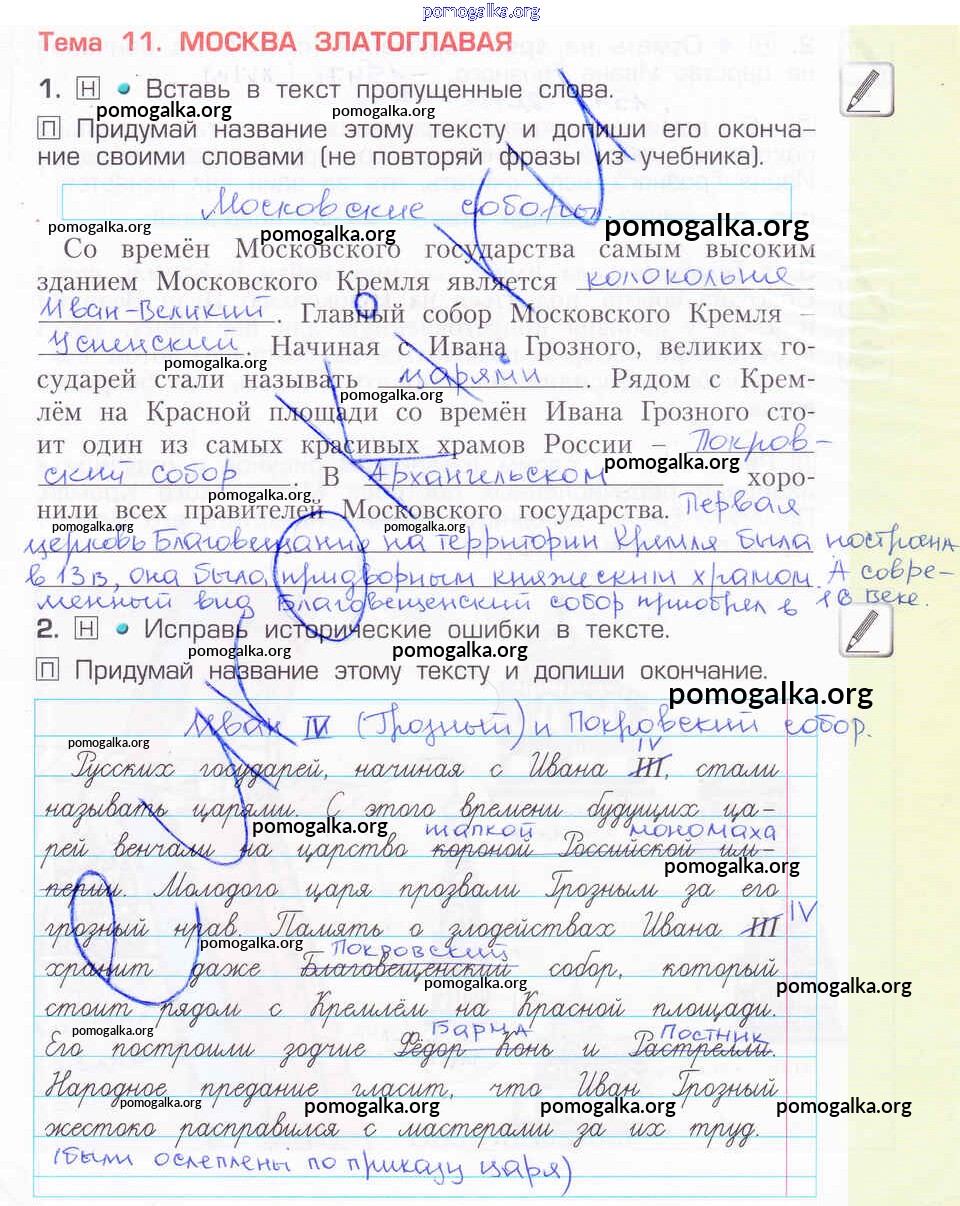 pomogalka.org
Тема 11. МОСКВА ЗЛАТОГЛАВАЯ
1. Н • Вставь в текст пропущенные слова.
pomogalka.org pomogalka.org
П Придумай название этому тексту и допиши его оконча-
ние своими словами (не повторяй фразы из учебника).
Московские соборы.
pomogalka.org pomogalka.org pomogalka.org
Со времён Московского государства самым высоким
зданием Московского Кремля является колокольня
Иван-Великий. Главный собор Московского Кремля –
Успенский. Начиная с Ивана Грозного, великих го-
pomogalka.org
сударей стали называть царями. Рядом с Крем-
pomogalka.org
лём на Красной площади со времён Ивана Грозного сто-
ит один из самых красивых храмов России – Покров-
pomogalka.org
ский собор. В Архангельском хоро-
pomogalka.org
нили всех правителей Московского государства. Первая
pomogalka.org pomogalka.org
церковь Благовещания на территории Кремля была построена
в 13в, она была придворным княжеским храмом. А совре-
менный вид Благовещенский собор приобрел в 16 веке.
2. Н • Исправь исторические ошибки в тексте.
pomogalka.org pomogalka.org
П Придумай название этому тексту и допиши окончание.
pomogalka.org
Иван IV (Грозный) и Покровский собор.
pomogalka.org IV
Русских государей, начиная с Ивана III, стали
называть царями. С этого времени будущих ца-
pomogalka.org шапкой мономаха
рей венчали на царство короной Российской им-
pomogalka.org
перии. Молодого царя прозвали Грозным за его
IV
грозный нрав. Память о злодействах Ивана III
pomogalka.org Покровский
хранит даже Благовещенский собор, который
pomogalka.org pomogalka.org
стоит рядом с Кремлём на Красной площади.
pomogalka.org Барма Постник
Его построили зодчие Фёдор Конь и Растрелли.
Народное предание гласит, что Иван Грозный
pomogalka.org pomogalka.org pomogalka.org pomogalka.org
жестоко расправился с мастерами за их труд.
(были ослеплены по приказу царя)